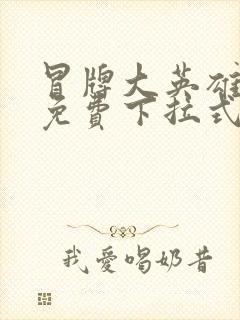 冒牌大英雄
免費下拉式
我愛喝奶昔